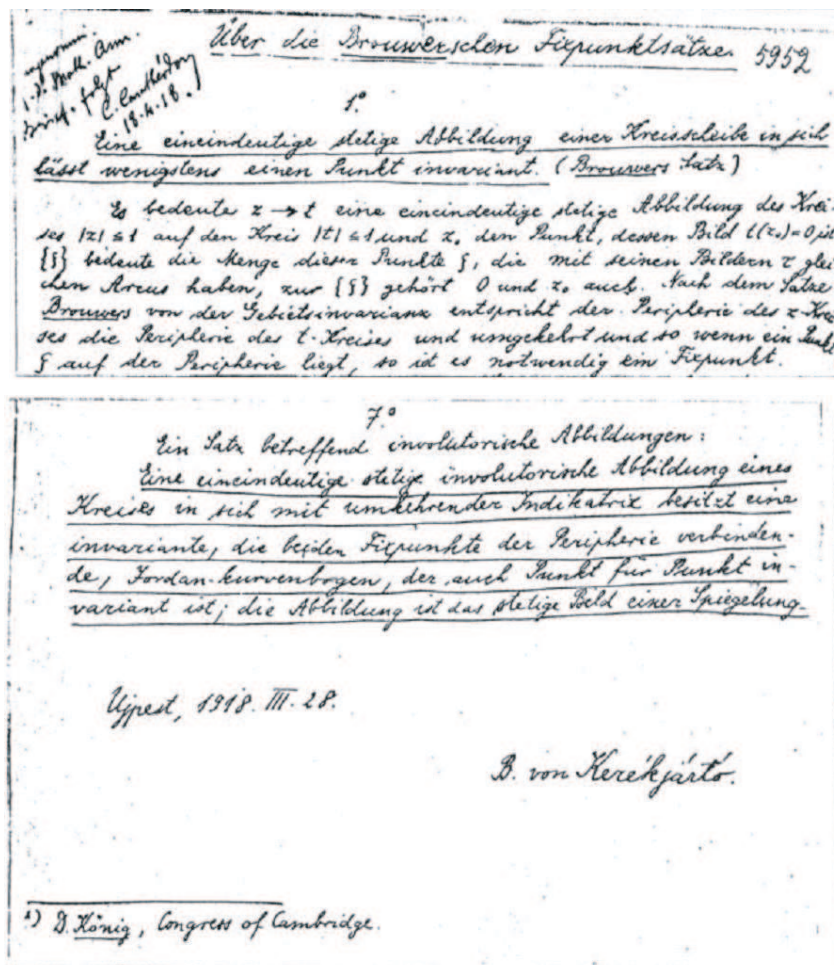 Über die Brouwerschen Fixpunktsätze. 5952
angenomm.
f. d. Math. Ann.
Brief folgt
C. Carathéodory
18.4.18.
1.°
Eine eineindeutige stetige Abbildung einer Kreisscheibe in sich
lässt wenigstens einen Punkt invariant. (Brouwers Satz)
Es bedeute z → t eine eineindeutige stetige Abbildung des Krei-
ses |z| ≤ 1 auf den Kreis |t| ≤ 1 und z₀ den Punkt, dessen Bild t(z₀)=0 ist
{ζ} bedeute die Menge dieser Punkte ζ, die mit seinen Bildern τ glei-
chen Arcus haben, zur {ζ} gehört 0 und z₀ auch. Nach dem Satze
Brouwers von der Gebietsinvarianz entspricht der Peripherie des z-Krei
ses die Peripherie des t-Kreises und umgekehrt und so wenn ein Punkt
ζ auf der Peripherie liegt, so ist es notwendig ein Fixpunkt.
7.°
Ein Satz betreffend involutorische Abbildungen:
Eine eineindeutige stetige involutorische Abbildung eines
Kreises in sich mit umkehrender Indikatrix besitzt eine
invariante, die beiden Fixpunkte der Peripherie verbinden-
de, Jordan-kurvenbogen, der auch Punkt für Punkt in-
variant ist; die Abbildung ist das stetige Bild einer Spiegelung.
Ujpest, 1918. III. 28.
B. von Kerékjártó.
¹) D. König, Congress of Cambridge.